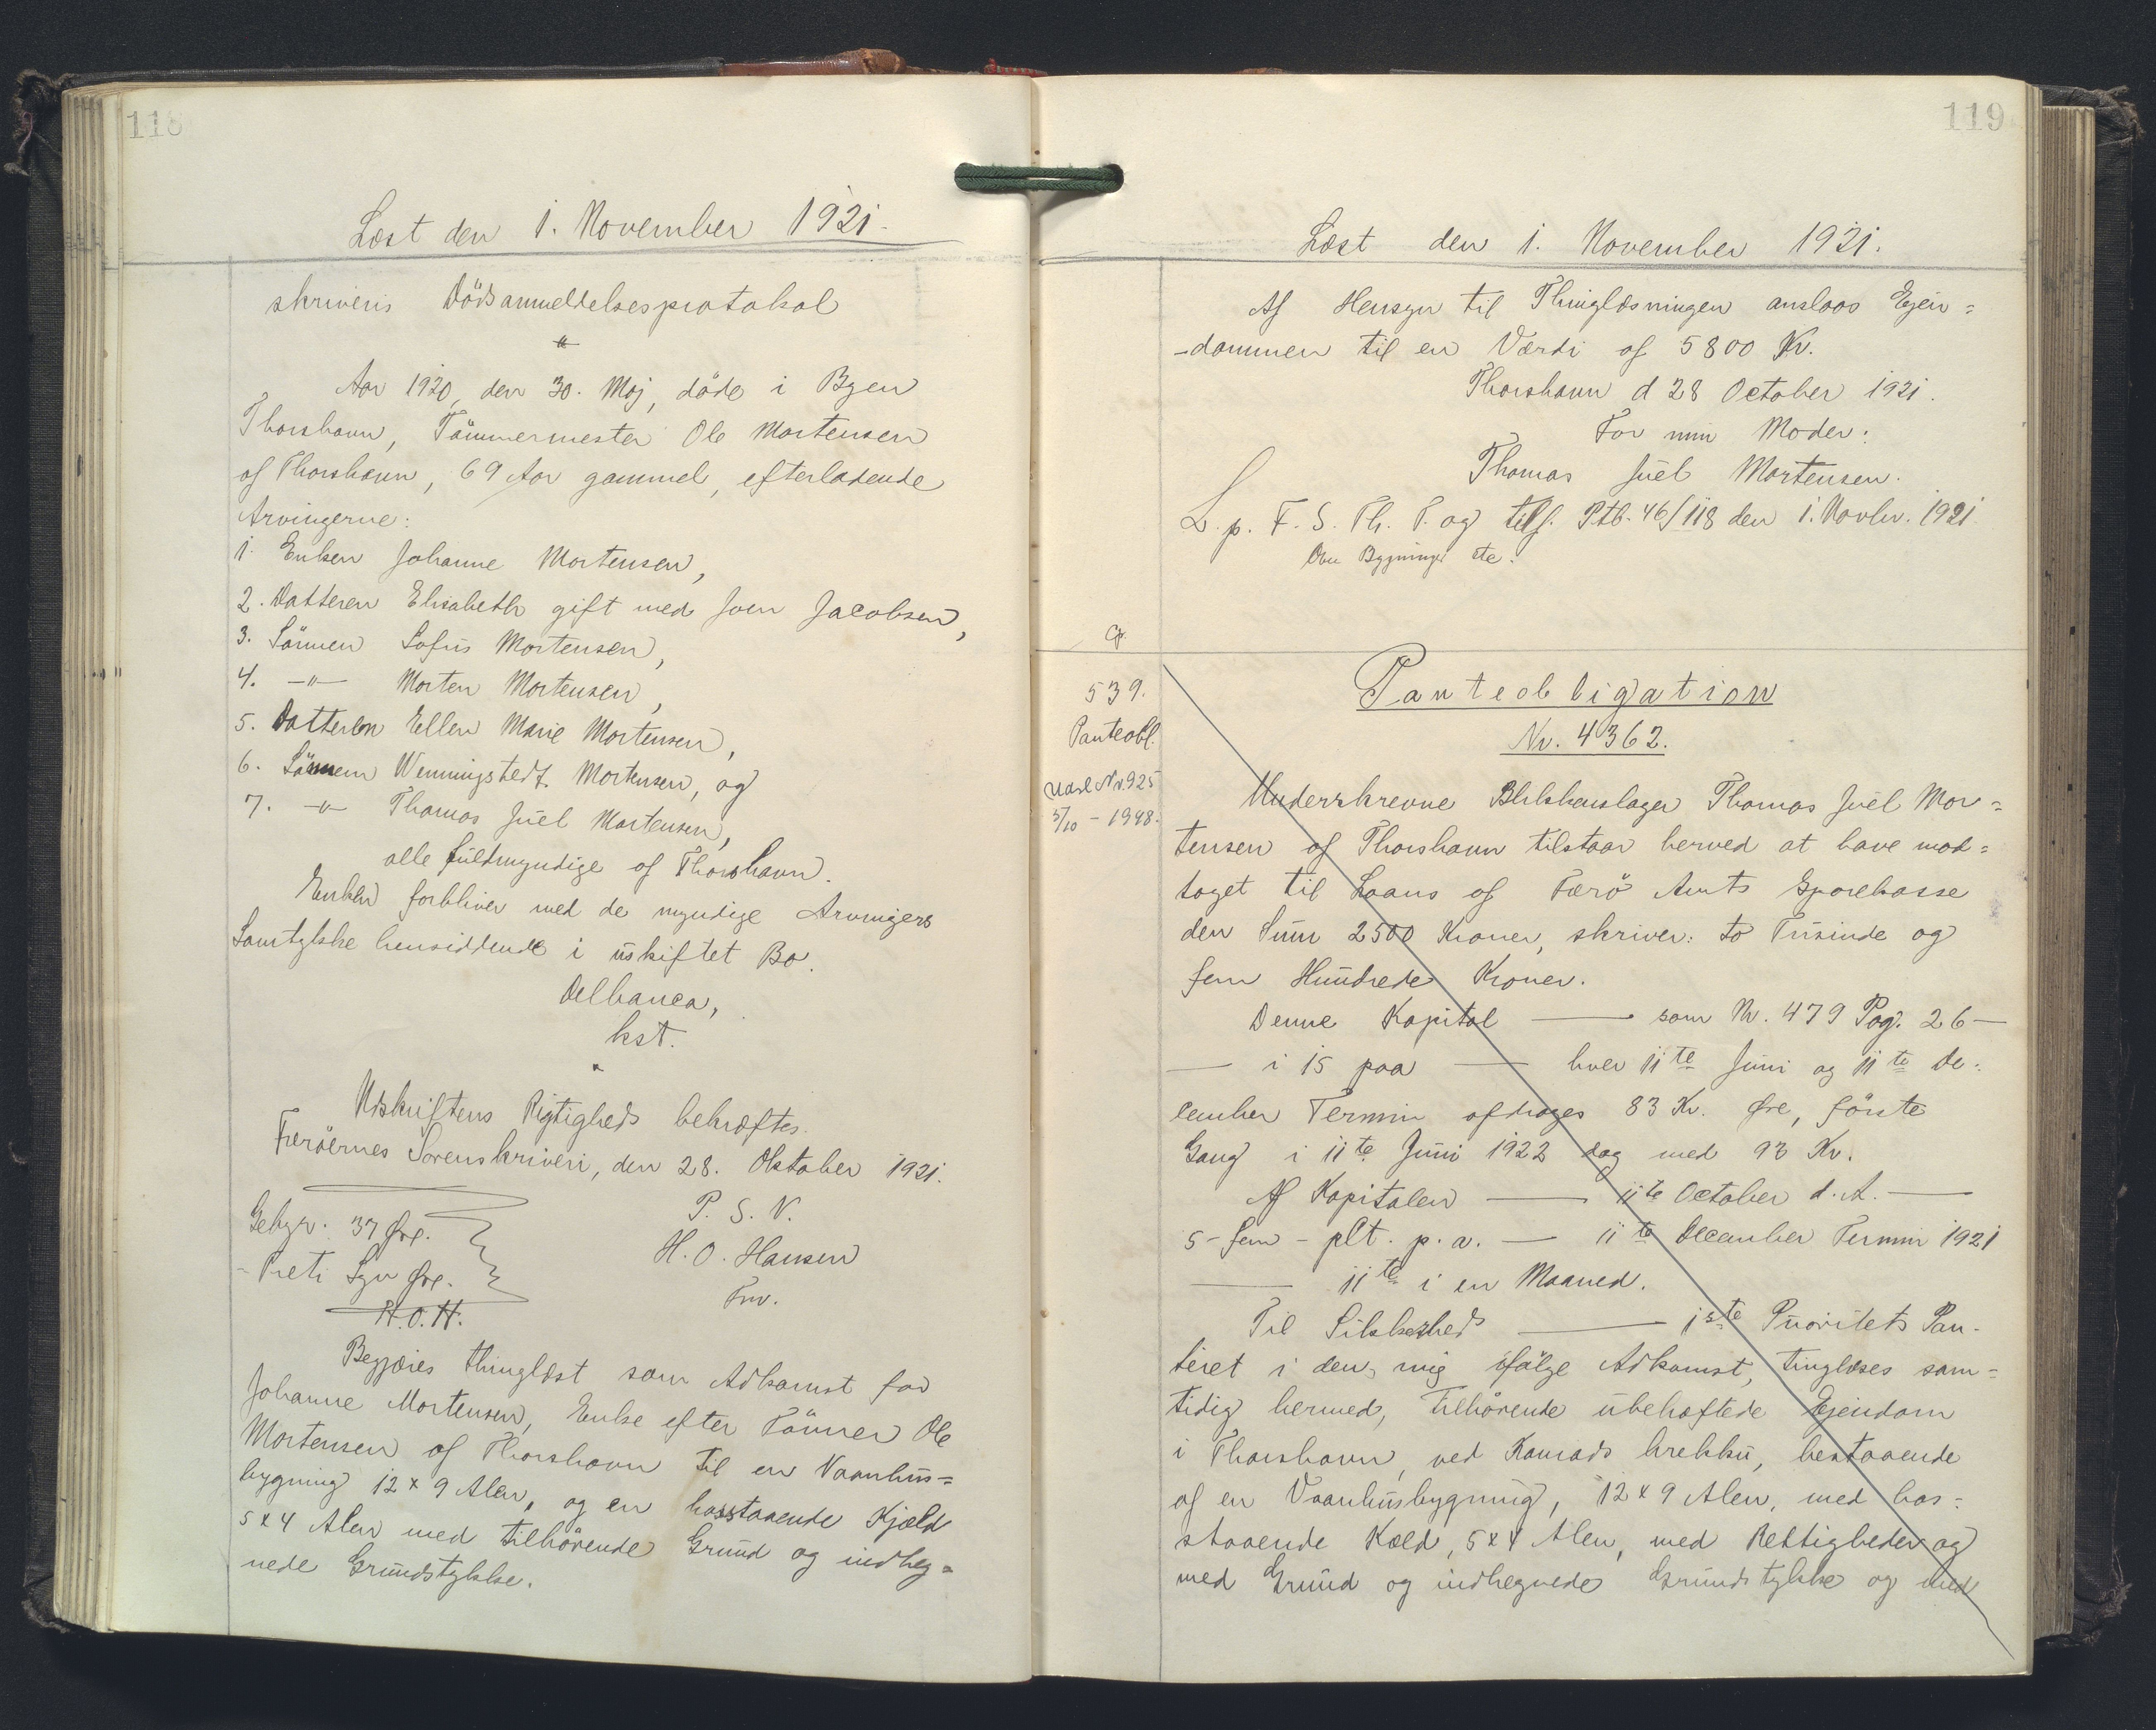 118
Læst den 1. November 1921.
skriveris Dödsanmeldelsesprotokol
"
Aar 1920, den 30. Maj, döde i Byen
Thorshavn, Tömmermester Ole Mortensen
af Thorshavn, 69 Aar gammel, efterladende
Arvingerne:
1. Enken Johanne Mortensen,
2. Datteren Elisabeth gift med Joen Jacobsen,
3. Sönnen Sofus Mortensen,
4. -"- Morten Mortensen,
5. Datteren Ellen Marie Mortensen,
6. Sönnen Wenningstedt Mortensen, og
7. -"- Thomas Juel Mortensen,
alle fuldmyndige af Thorshavn.
Enken forbliver med de myndige Arvingers
Samtykke hensiddende i uskiftet Bo.
Delbanco,
kst.
"
Udskriftens Rigtighed bekræftes.
Færöernes Sorenskriveri, den 28. Oktober 1921.
Gebyr: 37 Øre.
P. S. V.
- Treti Syv Øre.
H. O. Hansen
H.O.H.
Fm.
Begjæres thinglæst som Adkomst for
Johanne Mortensen, Enke efter Tömrer Ole
Mortensen af Thorshavn til en Vaanhus=
bygning 12 x 9 Alen, og en hosstaaende Kjæld
5 x 4 Alen med tilhörende Grund og indheg=
nede Grundstykke.
119
Læst den 1. November 1921.
Af Hensyn til Thinglæsningen anslaas Ejen=
-dommen til en Værdi af 5800 Kr.
Thorshavn d 28 October 1921.
For min Moder:
Thomas Juel Mortensen.
L. p. F. S. Th. P. og tilf. Ptb. 46/118 den 1. Novbr. 1921
Bygninger etc.
Cp.
539.
Panteobl.
Udsl Nr. 925
5/10 - 1948.
Panteobligation
Nr. 4362.
Underskrevne Blikkenslager Thomas Juel Mor=
tensen af Thorshavn tilstaar herved at have mod=
taget til Laans af Færö Amts Sparekasse
den Sum 2500 Kroner, skriver: to Tusinde og
fem Hundrede Kroner.
Denne Kapital —— som Nr. 479 Pag. 26 —
— i 15 paa —— hver 11te Juni og 11te De=
cember Termin afdrages 83 Kr. Øre, förste
Gang i 11te Juni 1922 dog med 93 Kr.
Af Kapitalen —— 11te October d. A. ——
5 - fem - pCt. p. a. — 11te December Termin 1921
—— 11te i en Maaned.
Til Sikkerhed —— 1ste Prioritets Pan-
teret i den, mig ifölge Adkomst, tinglæses sam=
tidig hermed, tilhörende ubehæftede Ejendom
i Thorshavn, ved Konrads brekku, bestaaende
af en Vaanhusbygning, 12 x 9 Alen, med hos=
staaende Kæld, 5 x 4 Alen, med Rettigheder og
med Grund og indhegnede Grundstykke og med